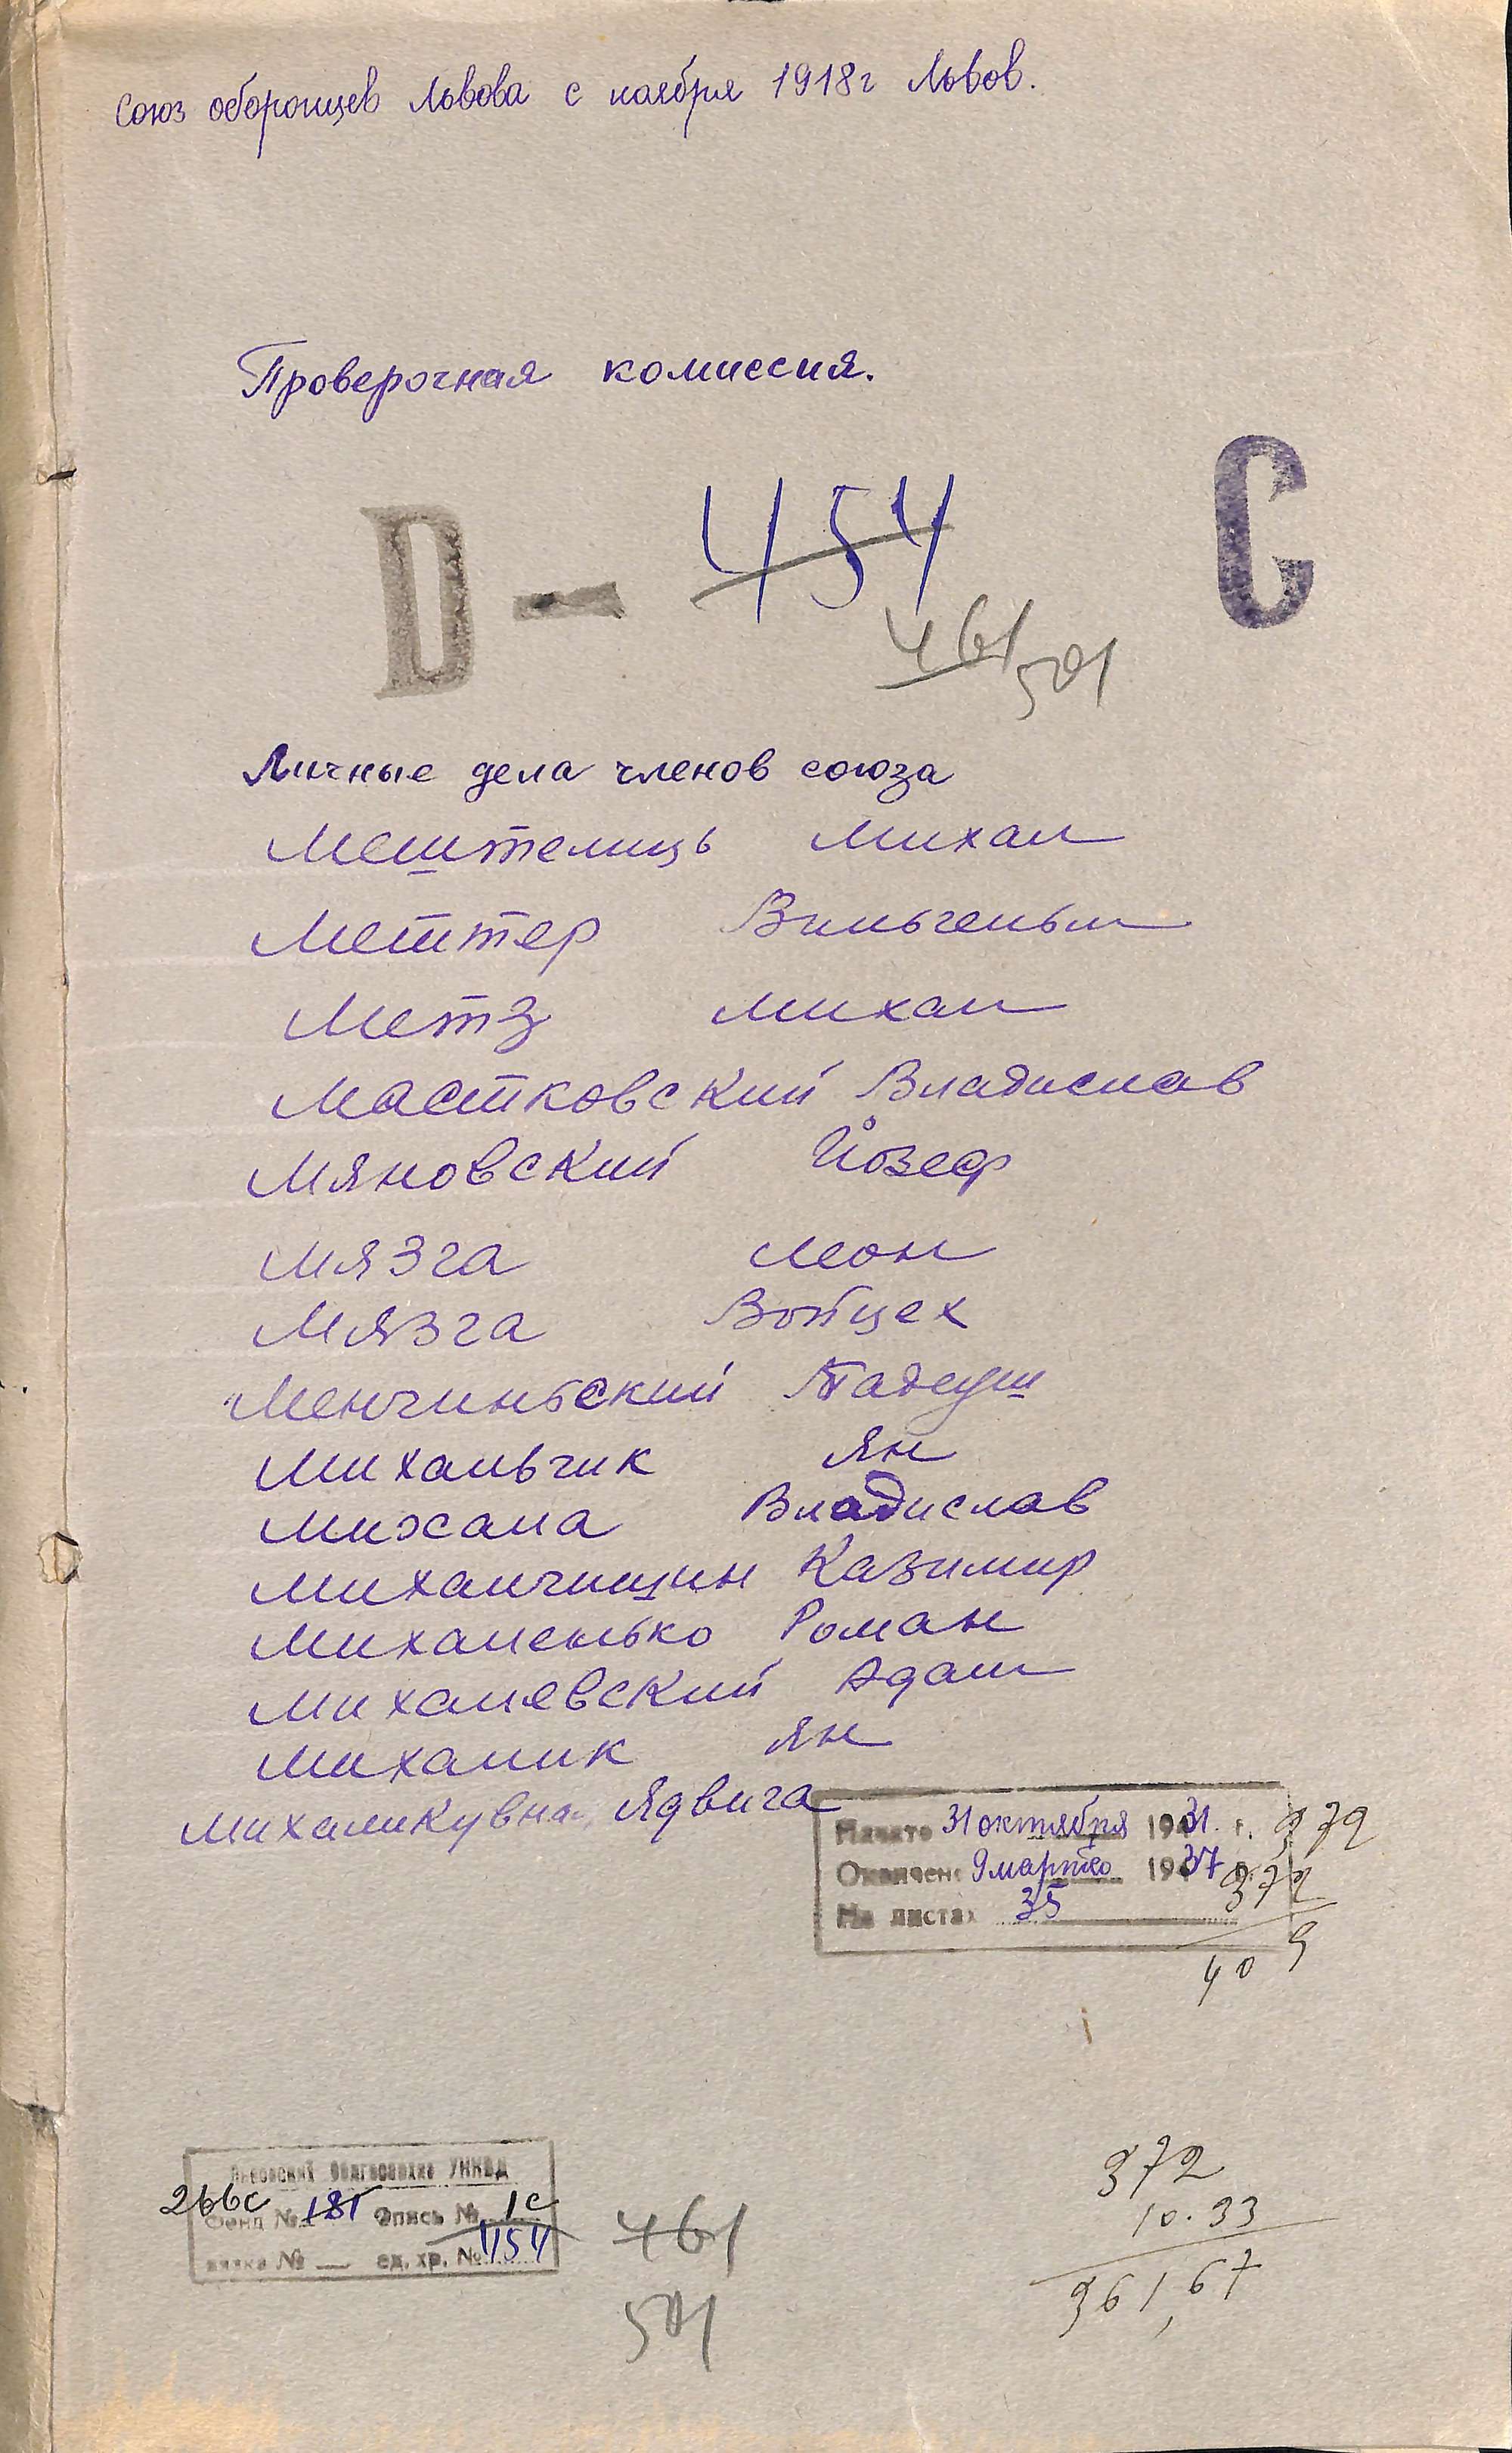 Союз оборонцев Львова с ноября 1918г Львов.
Проверочная комиссия.
D – 454 C
461
501
Личные дела членов союза
Мештелиць Михал
Меттер Вильгельм
Метз Михал
Мастковский Владислав
Мяновский Йозеф
Мязга Леон
Мязга Войцех
Менчиньский Тадеуш
Михальчик Ян
Михала Владислав
Михалчишин Казимир
Михаленько Роман
Михалевский Адам
Михалик Ян
Михаликувна Ядвига
Начато 31 октября 1931 г.
Окончено 9 марта 1937 г.
На листах 35
372
40 9
Львовский Облгосархив УНКВД
266с Фонд № 181 Опись № 1с
вязка № — ед. хр. № 454
461
501
372
10.33
361,67